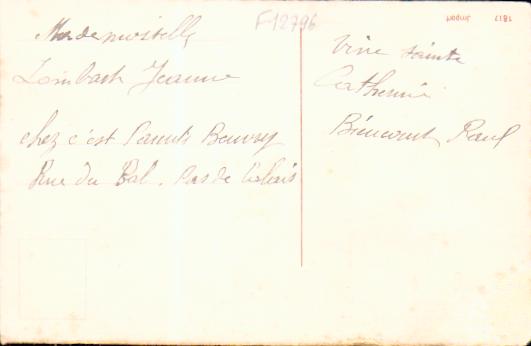 Mademoiselle
Lombart Jeanne
chez c'est Parents Beuvry
Rue du Bal. Pas de Calais
F-12796
Vive sainte
Catherine
Biencourt Raul
1817 Import